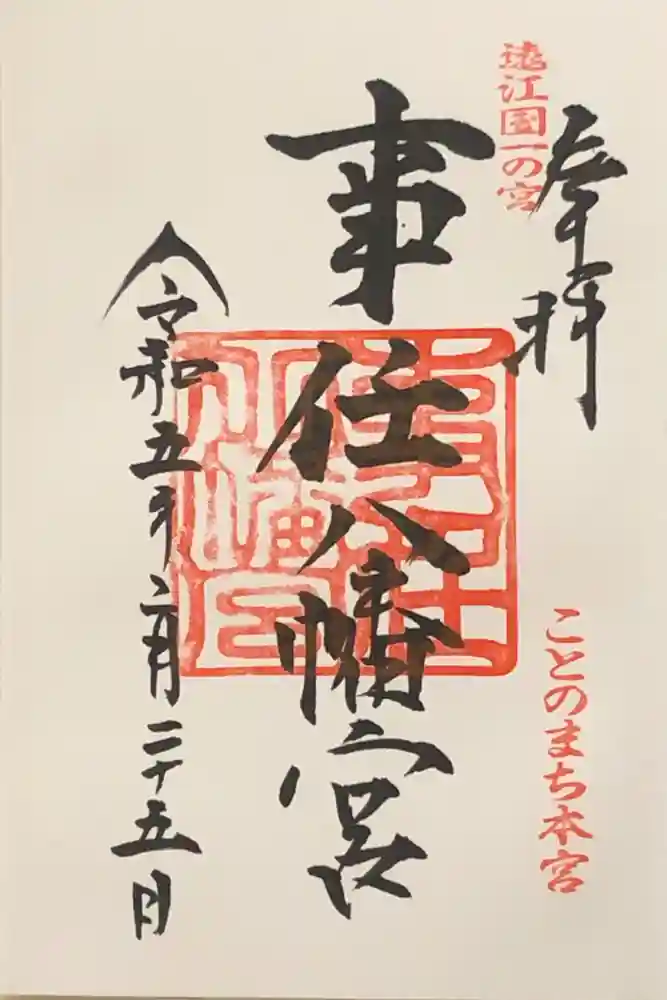 遠江国一の宮
奉拝
ことのまち本宮
事任八幡宮
令和五年六月二十五日